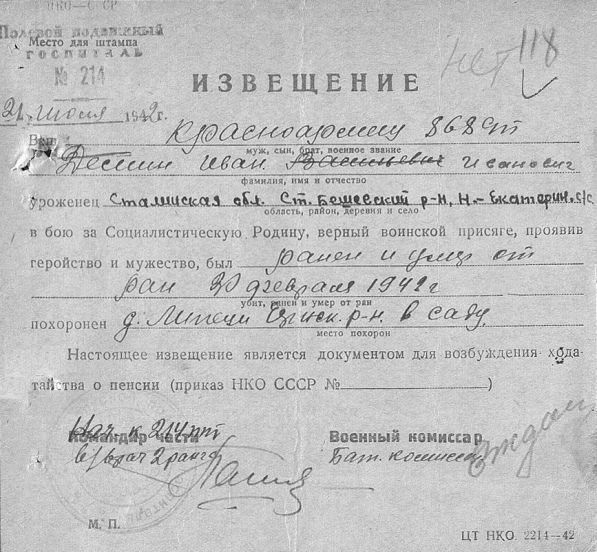 НКО—СССР
Полевой подвижный
Место для штампа
ГОСПИТАЛЬ
№ 214
нет 118
ИЗВЕЩЕНИЕ
21 июля 1942 г.
Ваш красноармеец 868
муж, сын, брат, военное звание
Иван Васильевич
фамилия, имя и отчество
уроженец Сталинская обл. Ст. Бешевский р-н, Н.-Екатерин. с/с
область, район, деревня и село
в бою за Социалистическую Родину, верный воинской присяге, проявив
геройство и мужество, был ранен и умер от
ран 20 февраля 1942 г
убит, ранен и умер от ран
похоронен д. Липецы р-н. в саду
место похорон
Настоящее извещение является документом для возбуждения хода-
тайства о пенсии (приказ НКО СССР №)
Нач. к 214
Командир части Военный комиссар
в/врач 2 ранга Бат. комиссар
М. П.
ЦТ НКО. 2214—42